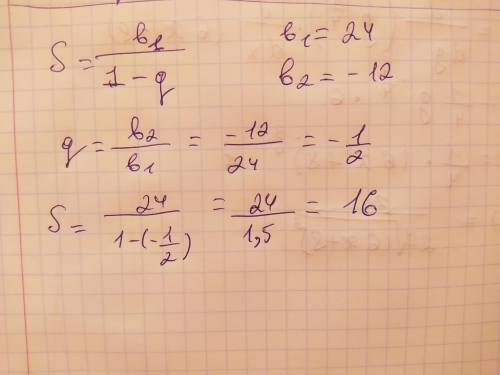 S = в₁ / (1 - q)    в₁ = 24
в₂ = -12
q = в₂ / в₁ = -12 / 24 = - 1/2
S = 24 / (1-(-1/2)) = 24 / 1,5 = 16